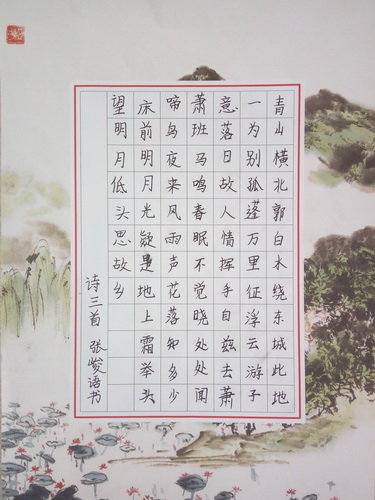 青山横北郭白水绕东城此地
一为别孤蓬万里征浮云游子
意落日故人情挥手自兹去萧
萧班马鸣春眠不觉晓处处闻
啼鸟夜来风雨声花落知多少
床前明月光疑是地上霜举头
望明月低头思故乡
诗三首 张峻语书